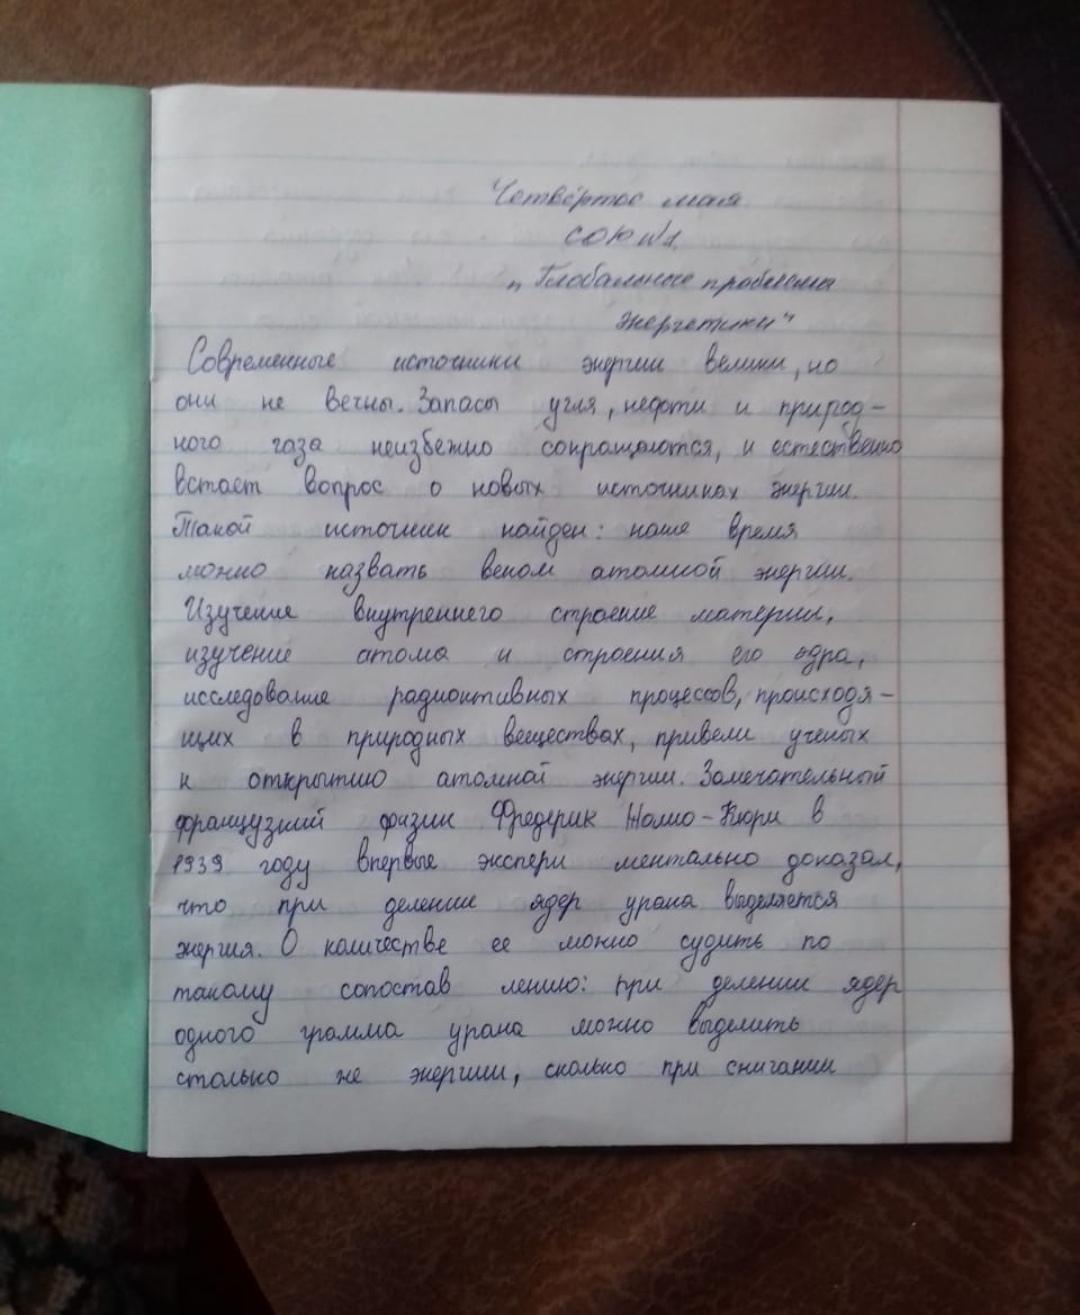 Четвёртое мая
СОЮ №1.
„Глобальные проблемы
энергетики"
Современные источники энергии велики, но
они не вечны. Запасы угля, нефти и природ-
ного газа неизбежно сокращаются, и естественно
встает вопрос о новых источниках энергии.
Такой источник найден: наше время
можно назвать веком атомной энергии.
Изучение внутреннего строение материи,
изучение атома и строения его ядра,
исследование радиоактивных процессов, происходя-
щих в природных веществах, привели ученых
к открытию атомной энергии. Замечательный
французкий физик Фредерик Жолио-Кюри в
1939 году впервые экспери ментально доказал,
что при делении ядер урана выделяется
энергия. О количестве ее можно судить по
такому сопостав лению: при делении ядер
одного грамма урана можно выделить
столько же энергии, сколько при сжигании